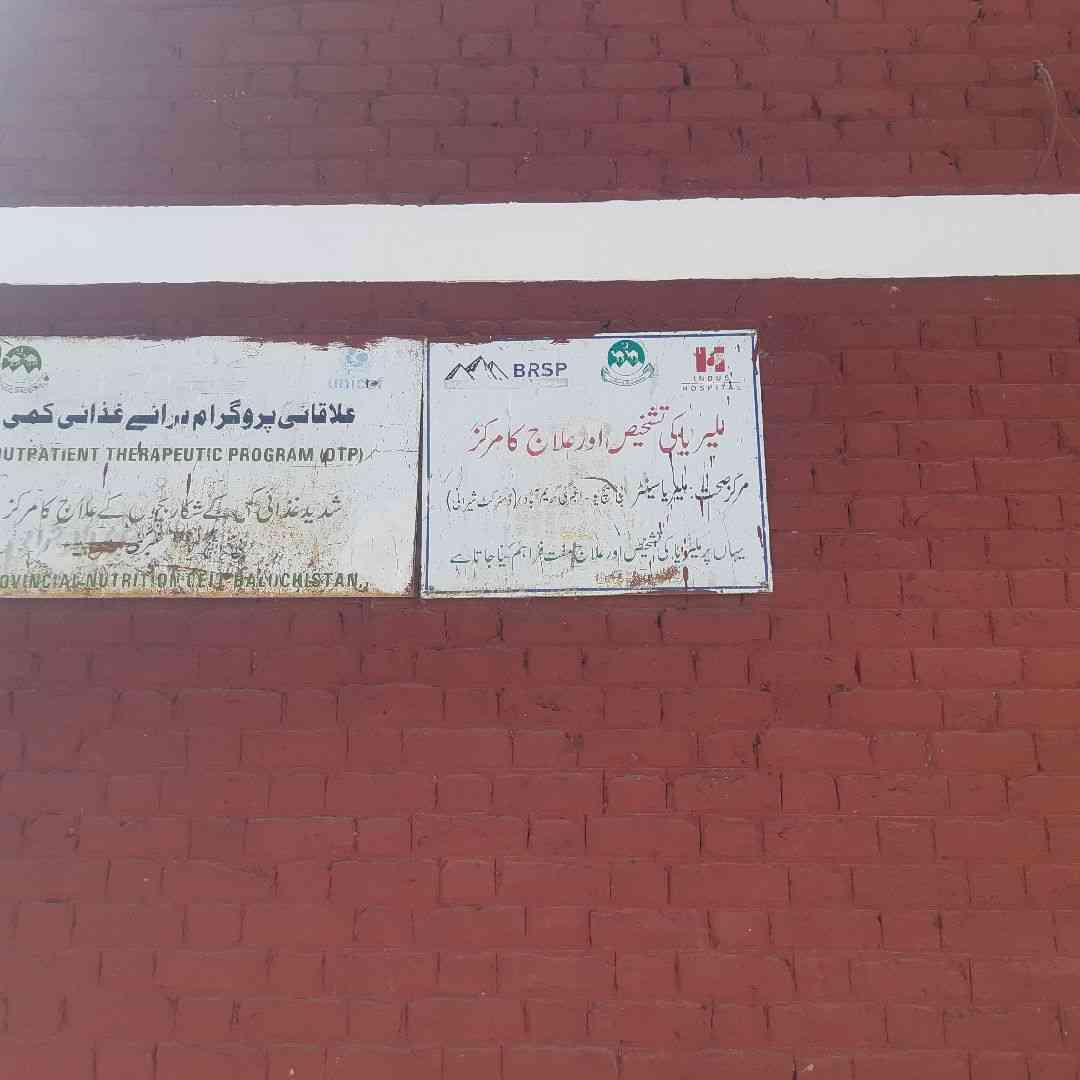 unicef
علاقائی پروگرام برائے غذائی کمی
OUTPATIENT THERAPEUTIC PROGRAM (OTP)
شدید غذائی کمی کے شکار بچوں کے علاج کا مرکز
PROVINCIAL NUTRITION CELL BALOCHISTAN
BRSP
INDUS
HOSPITAL
ملیریا کی تشخیص اور علاج کا مرکز
مرکز صحت: ملیریا سینٹر بی ایچ یو۔ (ڈسٹرکٹ شیرانی)
یہاں پر ملیریا کی تشخیص اور علاج مفت فراہم کیا جاتا ہے